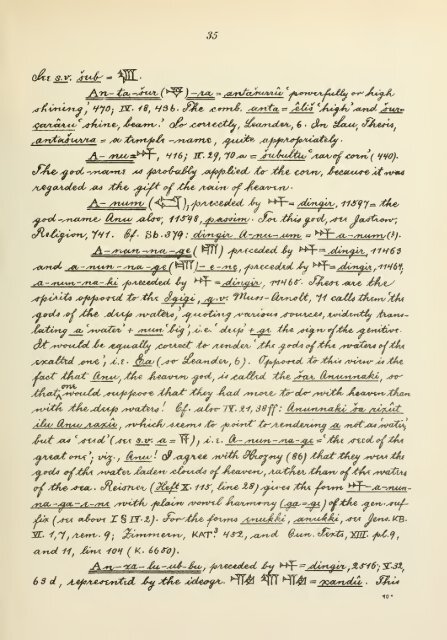 35
See s.v. šub = 𒀭.
An-ta-šur ( )-ra = antašurrû 'powerfully or high
shining,' 470; IV. 18, 43 b. The comb. anta = êliš 'high' and šur =
çarâru 'shine, beam.' So correctly, Leander, 6. In Lau, Thesis,
antašurra = a temple-name, quite appropriately.
A-nu , 416; II. 29, 70 a = šubultu 'ear of corn' (440).
The god-name is probably applied to the corn, because it was
regarded as the gift of the rain of heaven.
A-num ( ), preceded by = dingir, 11597 = the
god-name Anu also; 11598, passim. For this god, see Jastrow,
Religion, 741. Cf. Bb. 379: dingir A-nu-um = a-num (3).
A-nun-na-ge ( ) preceded by = dingir, 11463
and a-nun-na-ge ( )-e-ne, preceded by = dingir, 11464,
a-nun-na-ki preceded by = dingir, 11465. These are the
spirits opposed to the Igigi, q.v. Muss-Arnolt, 71 calls them 'the
gods of the deep waters,' quoting various sources, evidently trans-
lating a 'water' + nun 'big', i.e. 'deep' + ge the sign of the genitive.
It would be equally correct to render 'the gods of the waters of the
exalted one', i.e. Ea (so Leander, 6). Opposed to this view is the
fact that Anu, the heaven god, is called the šar Anunnaki, so
that one would suppose that they had more to do with heaven than
with the deep waters! Cf. also IV. 21, 38 ff: Anunnaki ša rixût
ilu Anu raxis, which seems to point to rendering a not as 'water'
but as 'seed' (see s.v. a = ), i.e. A-nun-na-ge = 'the seed of the
great one'; viz., Anu! I agree with Hrozny (86) that they were the
gods of the water laden clouds of heaven, rather than of the waters
of the sea. Reisner (Heft X. 115, line 28) gives the form a-nun-
na-ga-e-ne with plain vowel harmony (ga = ge) of the gen. suf-
fix (see above I § IV. 2). For the forms enukki, anukki, see Jens. KB.
VI. 1, 7, rem. 9; Zimmern, KAT.³ 452, and Cun. Texts, XIII. pl. 9,
and 11, line 104 (K. 6650).
An-za-lu-ub-bu, preceded by = dingir, 2516; V. 32,
63 d, represented by the ideogr. = xandû. This
10*